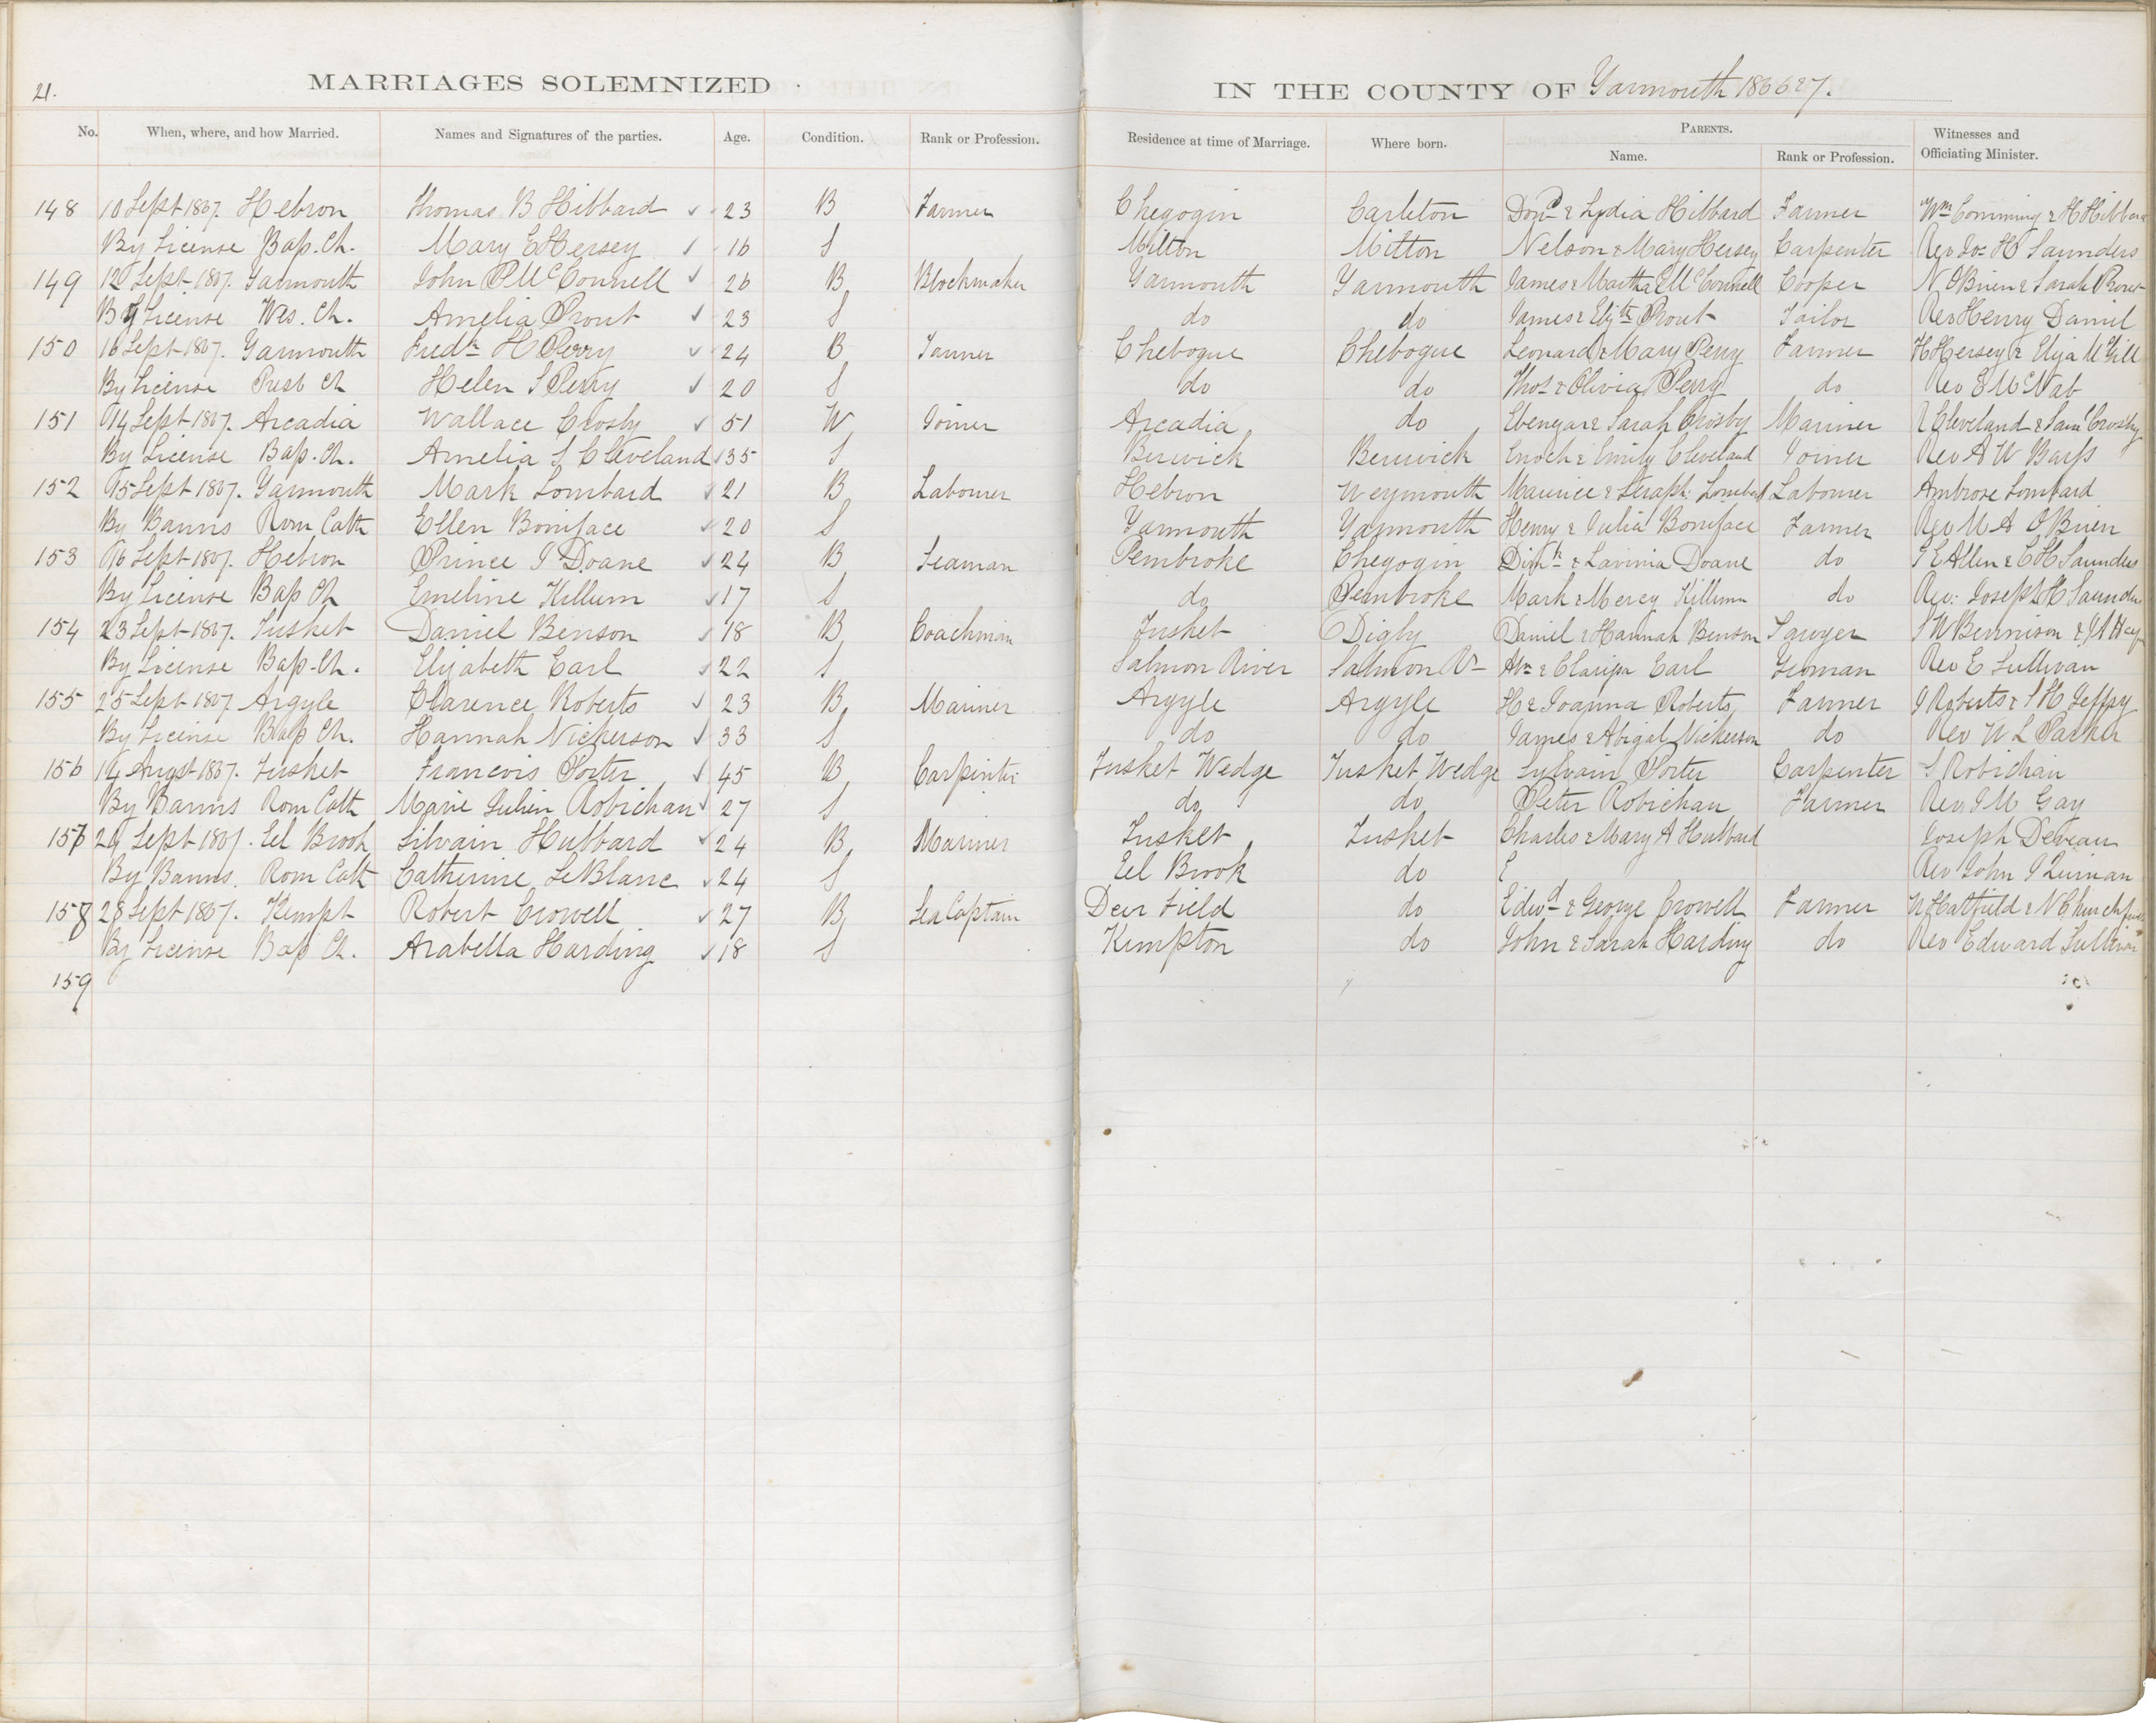 21.
MARRIAGES SOLEMNIZED IN THE COUNTY OF Yarmouth 1866 & 7.
No. When, where, and how Married. Names and Signatures of the parties. Age. Condition. Rank or Profession. Residence at time of Marriage. Where born. PARENTS. Name. Rank or Profession. Witnesses and Officiating Minister.
148 10 Sept 1867 Hebron Thomas B Hibbard 23 B Farmer Chegogin Carleton Don^d & Lydia Hibbard Farmer W^m Comming & H Hibbard
By License Bap. Ch. Mary E Hersey 16 S Milton Milton Nelson & Mary Hersey Carpenter Rev Jos H Saunders
149 12 Sept 1867. Yarmouth John P McConnell 26 B Blockmaker Yarmouth Yarmouth James & Martha E McConnell Cooper N O Brien & Sarah Prout
By License Wes. Ch. Amelia Prout 23 S do do James & Eliz^th Prout Tailor Rev Henry Daniel
150 16 Sept 1867. Yarmouth Fred^k H Perry 24 B Farmer Chebogue Chebogue Leonard & Mary Perry Farmer H Hersey & Eliza M Gill
By License Presb Ch Helen S Perry 20 S do do Tho^s & Olivia Perry do Rev McNab
151 14 Sept 1867. Arcadia Wallace Crosby 51 W Joiner Arcadia do Ebenezar & Sarah Crosby Mariner Cleveland & Sam^l Crosby
By License Bap. Ch. Amelia S Cleveland 35 S Berwick Berwick Enoch & Emily Cleveland Joiner Rev A W Barss
152 15 Sept 1867. Yarmouth Mark Lombard 21 B Labourer Hebron Weymouth Maurice & Seraph: Lombard Labourer Ambrose Lombard
By Banns Rom Cath Ellen Boniface 20 S Yarmouth Yarmouth Henry & Julia Boniface Farmer Rev M A O Brien
153 16 Sept 1867. Hebron Prince J Doane 24 B Seaman Pembroke Chegogin & Lavinia Doane do J E Allen & C H Saunders
By License Bap Ch Emeline Killum 17 S do Pembroke Mark & Mercy Killum do Rev: Joseph H Saunders
154 23 Sept 1867. Tusket Daniel Benson 18 B Coachman Tusket Digby Daniel & Hannah Benson Sawyer J W Bennison &
By License Bap. Ch. Elizabeth Earl 22 S Salmon River Salmon R^r W^m & Clarissa Earl Yeoman Rev E Sullivan
155 25 Sept 1867 Argyle Clarence Roberts 23 B Mariner Argyle Argyle H & Joanna Roberts Farmer J Roberts & S H Jeffry
By License Bap Ch. Hannah Nickerson 33 S do do James & Abigal Nickerson do Rev W L Parker
156 14 Augst 1867. Tusket Francois Porter 45 B Carpinter Tusket Wedge Tusket Wedge Sylvain Porter Carpenter S Robichau
By Banns Rom Cath Marie Julien Robichau 27 S do do Peter Robichau Farmer Rev J M Gay
157 29 Sept 1867. Eel Brook Silvain Hubbard 24 B Mariner Tusket Tusket Charles & Mary A Hubbard Joseph Deveau
By Banns. Rom Cath Catherine LeBlanc 24 S Eel Brook do Rev John J Quinan
158 28 Sept 1867. Kempt Robert Crowell 27 B Sea Captain Deer Field do Edw^d & George Crowell Farmer W Hatfield &
By License Bap Ch. Arabella Harding 18 S Kempton do John & Sarah Harding do Rev Edward Sullivan
159